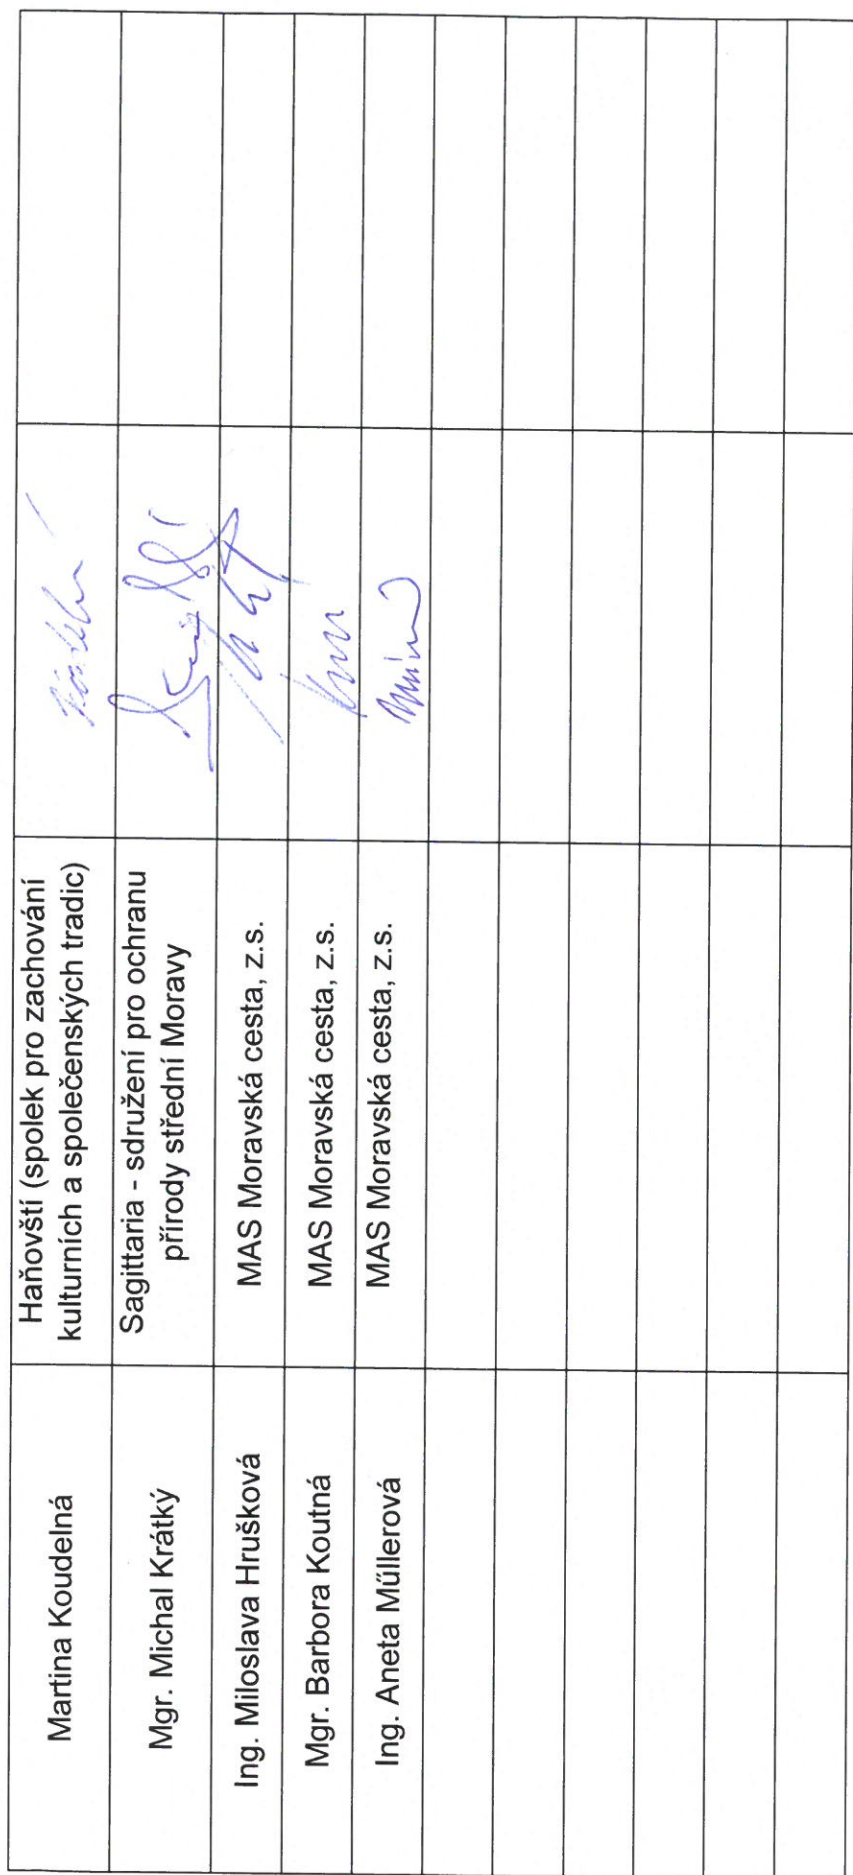 Martina Koudelná
Haňovští (spolek pro zachování
kulturních a společenských tradic)
Mgr. Michal Krátký
Sagittaria - sdružení pro ochranu
přírody střední Moravy
Ing. Miloslava Hrušková
MAS Moravská cesta, z.s.
Mgr. Barbora Koutná
MAS Moravská cesta, z.s.
Ing. Aneta Műllerová
MAS Moravská cesta, z.s.